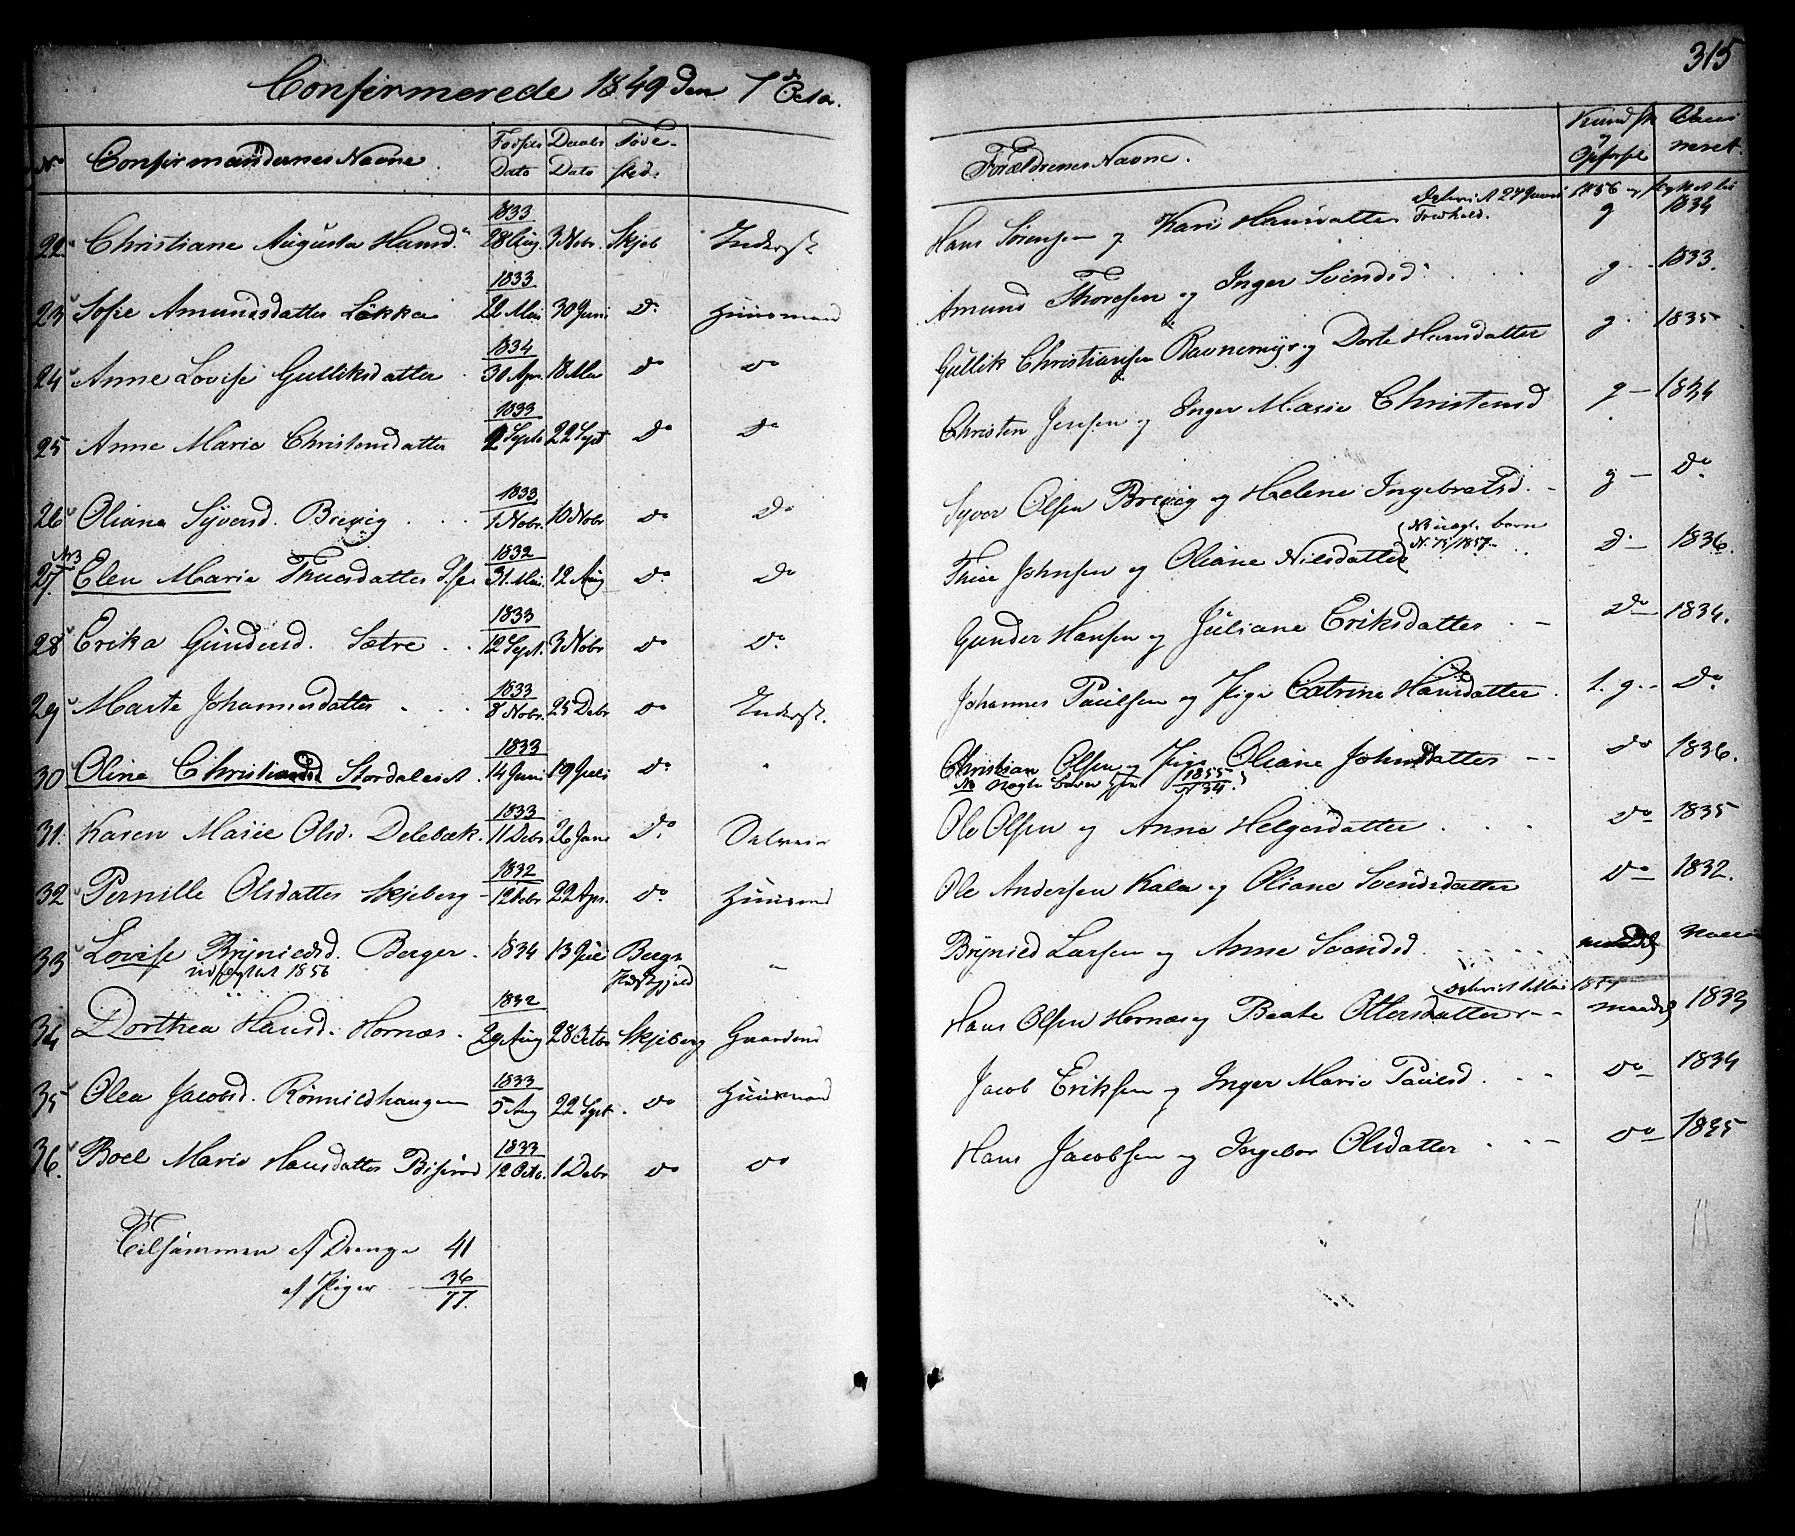 315
Confirmerede 1849 den 7d Octbr.
No Confirmandernes Navne. Fødsels Dato Daabs Dato Føde-sted. Forældrenes Navne. Kundsk og Opførsel Vaccineret.
22. Christiane Augusta Hansd. 1833 28 Aug. 3 Nobr. Skjeb Inderst Hans Sørensen og Kari Hansdatter g 1834
23 Sofie Amundsdatter Løkka 1833 22 Mai 30 Juni do Huusmand Amund Thoresen og Inger Svendsd. g 1833.
24 Anne Lovise Gulliksdatter 1834 30 Apr. 18 Mai do do Gullik Christiansen Ravnemyr og Dorte Hansdatter g. 1835
25 Anne Marie Christensdatter 1833 2 Septb 22 Sept do do Christen Jensen og Inger Marie Christensd g — 1834
26 Oliane Syversd. Brevig 1833 1 Nobr. 10 Nobr do do Syver Olsen Brevig og Helene Ingebratsd. g — do
No 3
27. Elen Marie Thuesdatter 1832 31. Mai 12 Aug do do Thue Johnsen og Oliane Nilsdatter d. — 1836.
(NB uægt. barn N. 75/1857
28 Erika Gundersd. Sætre 1833 12 Sept. 3 Nobr do do Gunder Hansen og Juliane Eriksdatter do 1834.
29 Marte Johannesdatter 1833 8 Nobr. 25 Debr do Inderst. Johannes Paulsen og Pige Catrine Hansdatter t. g. do
30 Oline Christiansd Stordaleiet 1833 14 Juni 19 Juli do Christian Olsen og Pige Oliane Johnsdatter do 1836.
31. Karen Marie Olsd. Delebæk. 1833 11 Debr 26 Jan do Selveier Ole Olsen og Anne Helgesdatter do 1835
32 Pernille Olsdatter Skjeberg 1832 12 Febr 22 Apr. do Huusmd Ole Andersen Kala og Oliane Svendsdatter do 1832.
33 Lovise Brynildsd. Berger. 1834 13 Juli Bergs Præstgjeld Brynild Larsen og Anne Svendsd maadel
udflyttet 1856
34 Dorthea Hansd. Hornæs. 1832 29 Aug 28 Octbr Skjeberg Gaardmd Hans Olsen Hornæs og Beate Ottersdatter maadel 1833
35 Olea Jacobsd. Rønnildhaugen 1833 5 Aug 22 Sept. do Huusmand Jacob Eriksen og Inger Marie Paulsd. do 1834
36. Boel Marie Hansdatter 1833 12 Octb. 1 Debr do do Hans Jacobsen og Ingebor Olsdatter do 1835
Tilsammen af Drenge 41
af Piger 36
77.